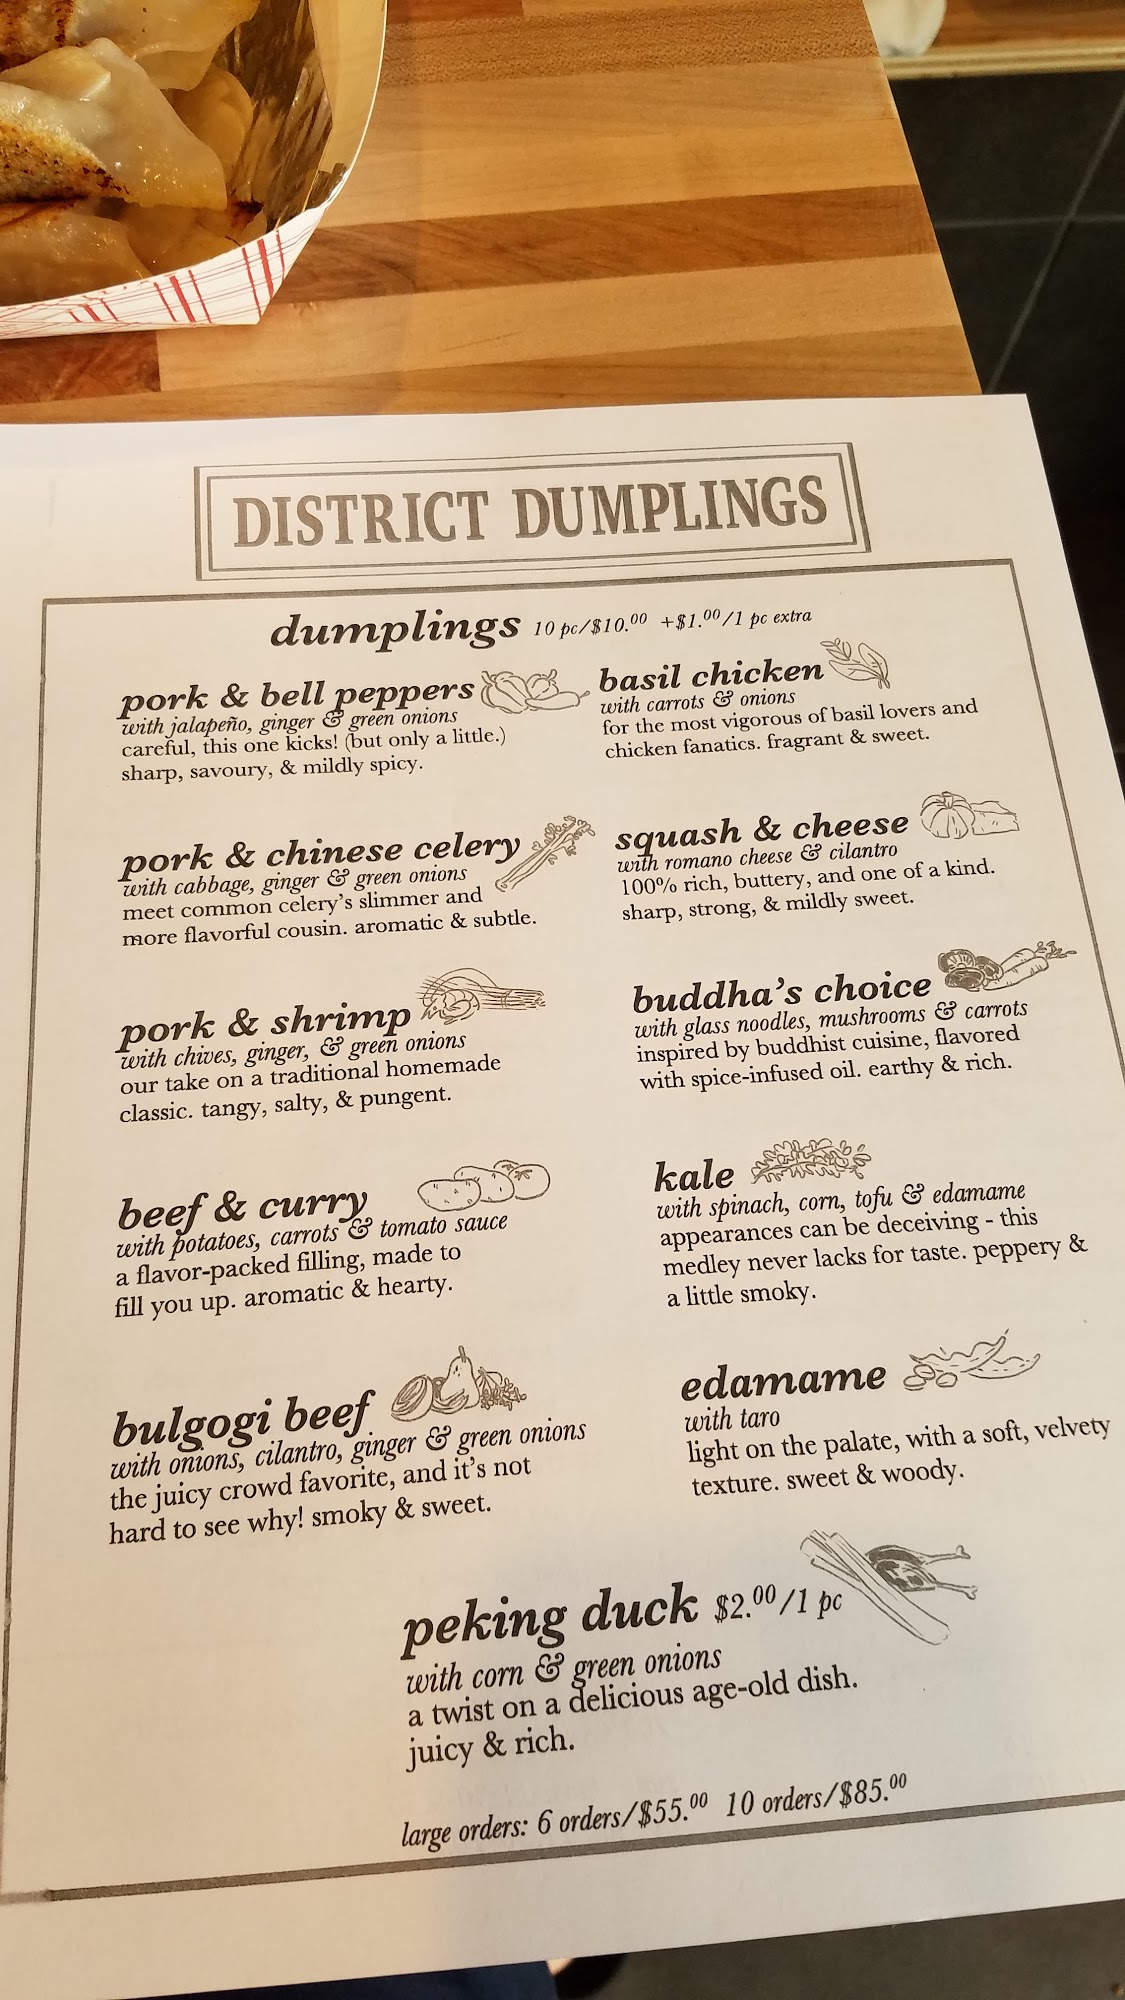 DISTRICT DUMPLINGS
dumplings 10 pc/$10.00 +$1.00/1 pc extra
pork & bell peppers
with jalapeño, ginger & green onions
careful, this one kicks! (but only a little.)
sharp, savoury, & mildly spicy.
pork & chinese celery
with cabbage, ginger & green onions
meet common celery's slimmer and
more flavorful cousin. aromatic & subtle.
pork & shrimp
with chives, ginger, & green onions
our take on a traditional homemade
classic. tangy, salty, & pungent.
beef & curry
with potatoes, carrots & tomato sauce
a flavor-packed filling, made to
fill you up. aromatic & hearty.
bulgogi beef
with onions, cilantro, ginger & green onions
the juicy crowd favorite, and it's not
hard to see why! smoky & sweet.
basil chicken
with carrots & onions
for the most vigorous of basil lovers and
chicken fanatics. fragrant & sweet.
squash & cheese
with romano cheese & cilantro
100% rich, buttery, and one of a kind.
sharp, strong, & mildly sweet.
buddha's choice
with glass noodles, mushrooms & carrots
inspired by buddhist cuisine, flavored
with spice-infused oil. earthy & rich.
kale
with spinach, corn, tofu & edamame
appearances can be deceiving - this
medley never lacks for taste. peppery &
a little smoky.
edamame
with taro
light on the palate, with a soft, velvety
texture. sweet & woody.
peking duck $2.00/1 pc
with corn & green onions
a twist on a delicious age-old dish.
juicy & rich.
large orders: 6 orders/$55.00 10 orders/$85.00